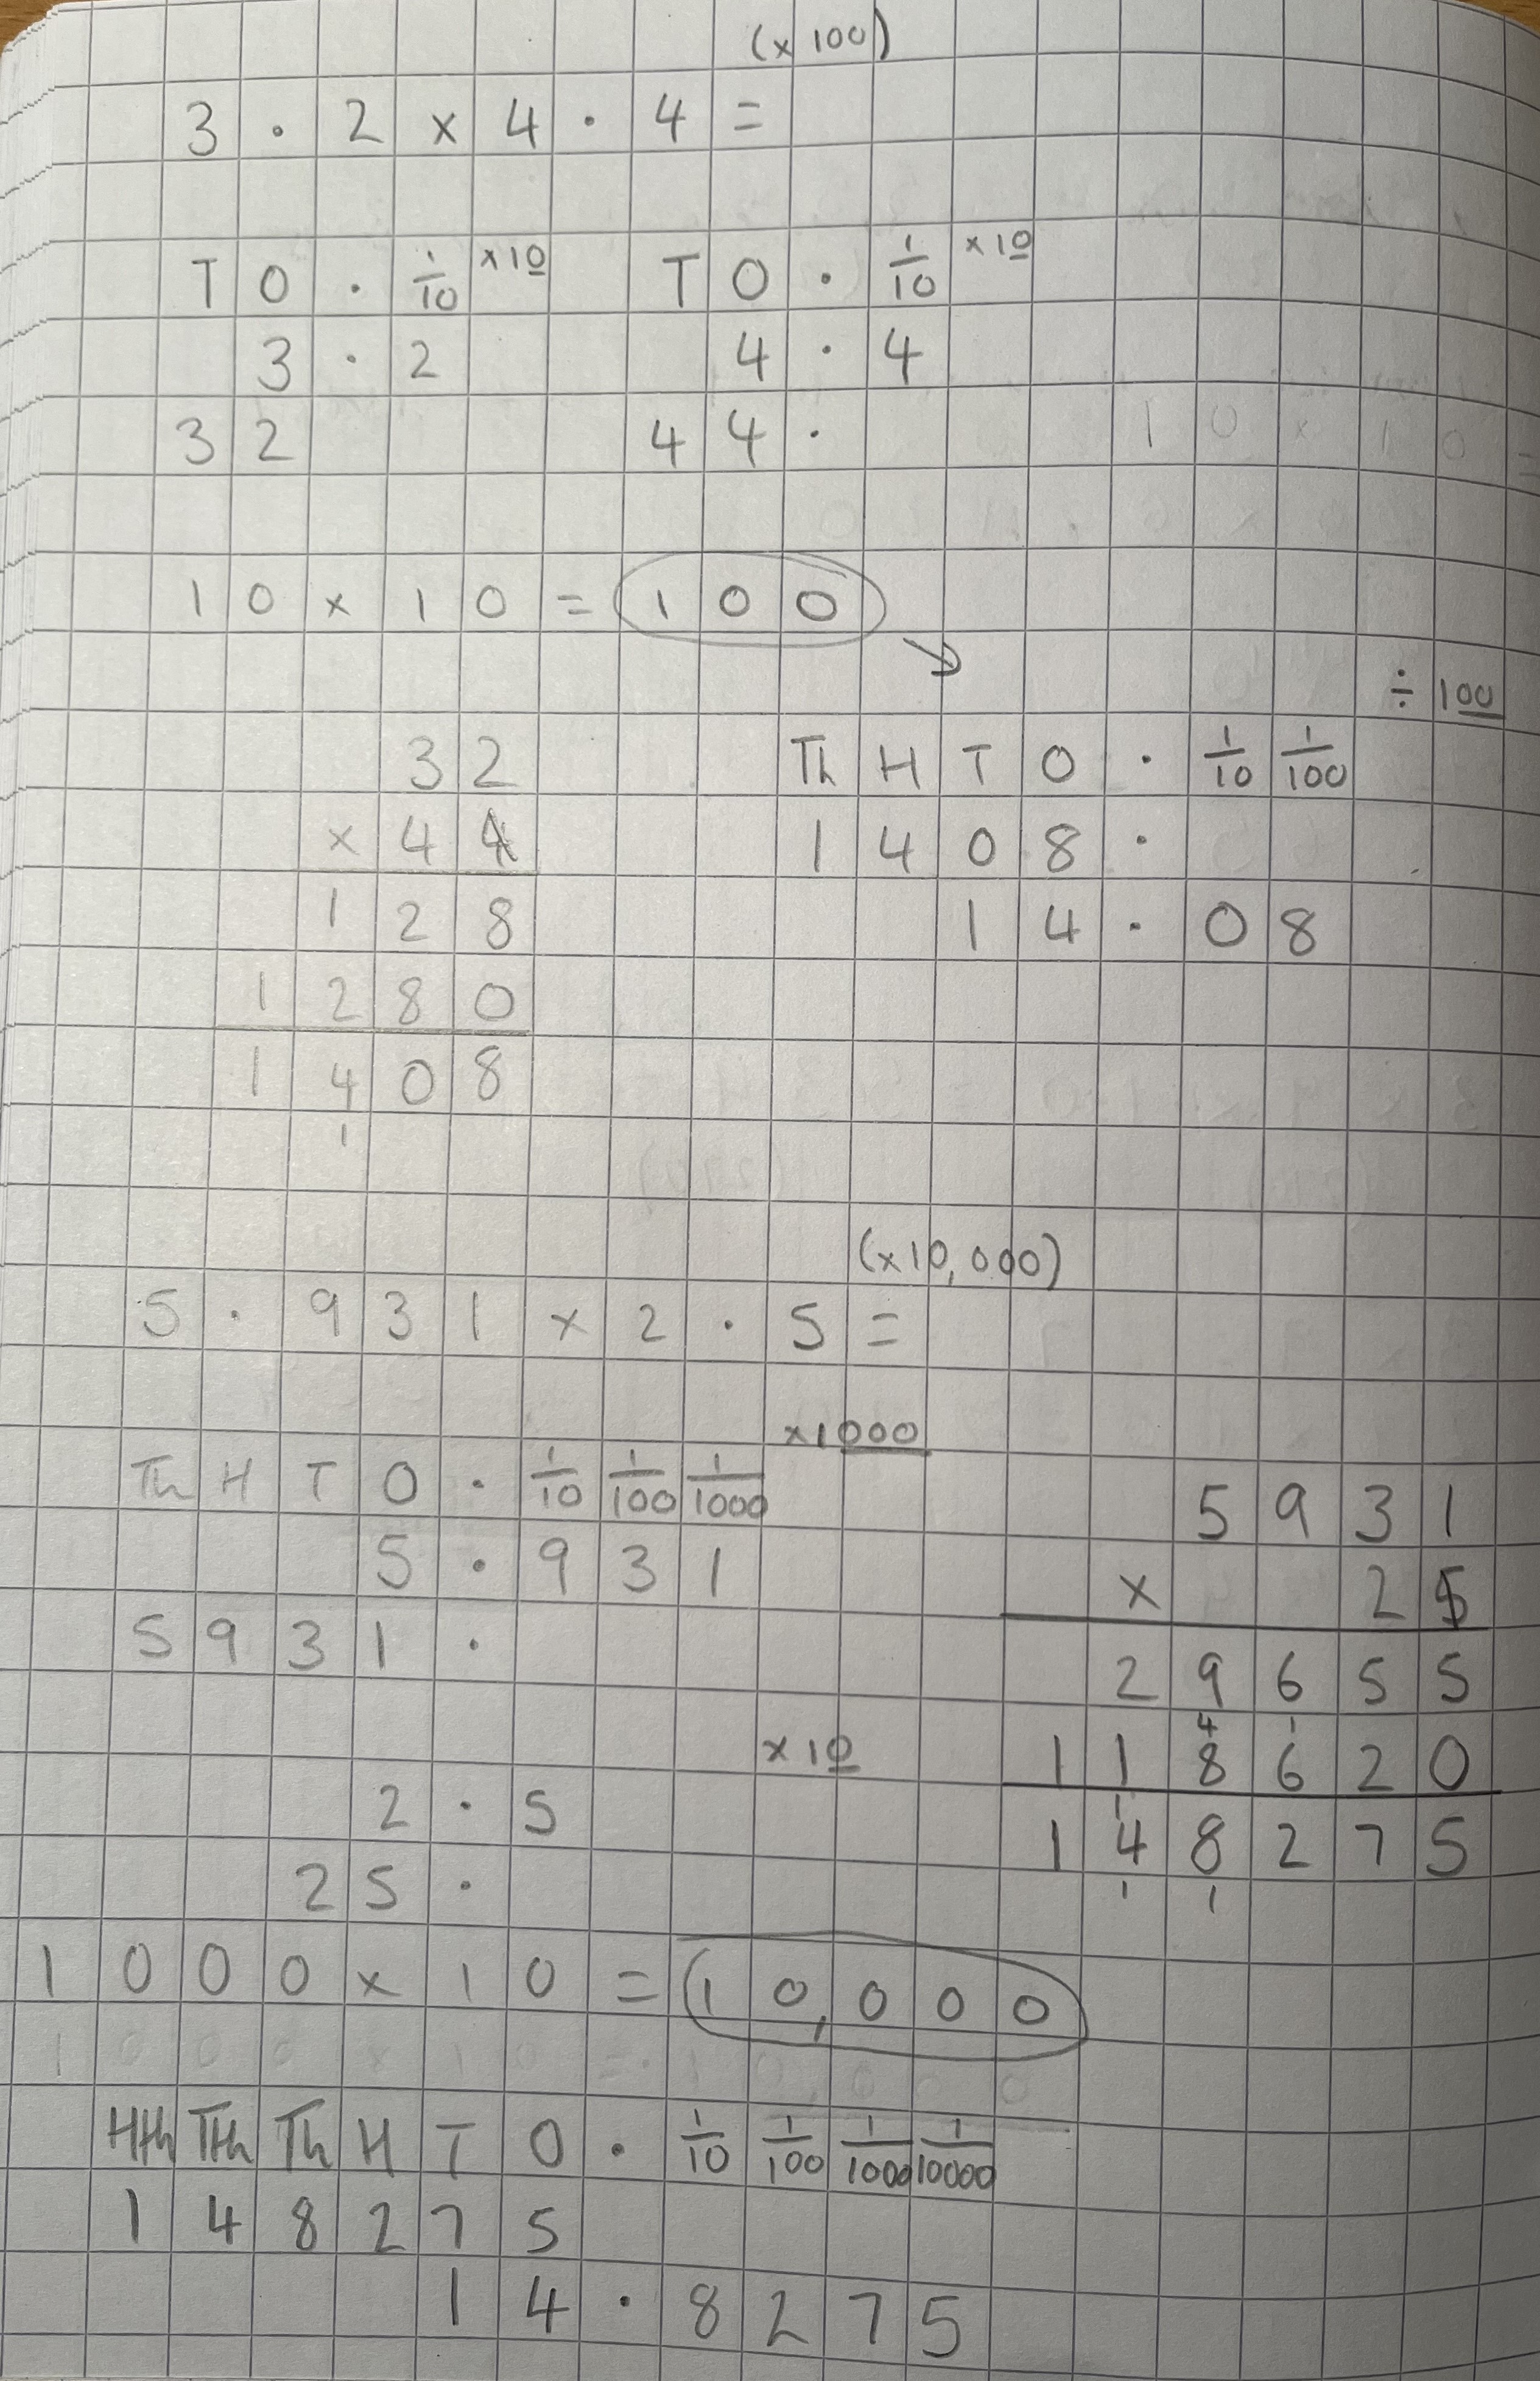 (x 100)
3 . 2 x 4 . 4 =
T O . 1/10 x10 T O . 1/10 x10
3 . 2 4 . 4
3 2 4 4 .
1 0 x 1 0 =
1 0 x 1 0 = 1 0 0
÷ 100
3 2
x 4 4
1 2 8
1 2 8 0
1 4 0 8
1
Th H T O . 1/10 1/100
1 4 0 8 .
1 4 . 0 8
(x10,000)
5 . 9 3 1 x 2 . 5 =
x1000
Th H T O . 1/10 1/100 1/1000
5 . 9 3 1
5 9 3 1 .
x10
2 . 5
2 5 .
5 9 3 1
x 2 5
2 9 6 5 5
4 1
1 1 8 6 2 0
1
1 4 8 2 7 5
1 1
1 0 0 0 x 1 0 = 1 0 , 0 0 0
1 0 0 0 x 1 0 = 1 0 , 0 0 0
HTh TTh Th H T O . 1/10 1/100 1/1000 1/10000
1 4 8 2 7 5
1 4 . 8 2 7 5